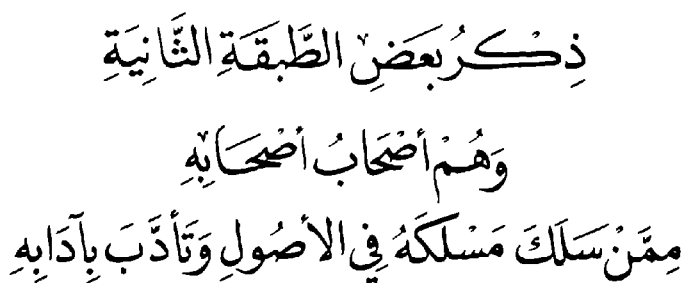 ذِكْرُ بَعْضِ الطَّبَقَةِ الثَّانِيَةِ
وَهُمْ أَصْحَابُ أَصْحَابِهِ
مِمَّنْ سَلَكَ مَسْلَكَهُ فِي الأُصُولِ وَتَأَدَّبَ بِآدَابِهِ